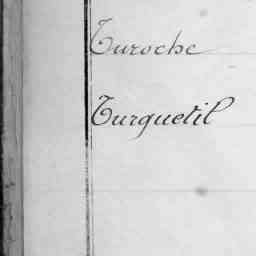 Turoche
Turquetil